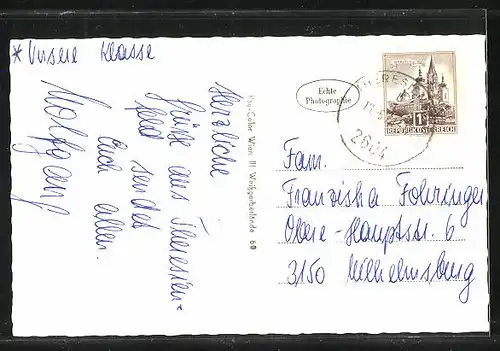 * Unsere Klasse
Herzliche
Grüße aus Theresien-
feld sendet
Euch allen
Wolfgang
Wien III Weißgerberlände
Echte
Photographie
THERES
2604
1S
REPUBLIK ÖSTERREICH
Fam.
Franziska Fohringer
Obere-Hauptstr. 6
3150 Wilhelmsburg